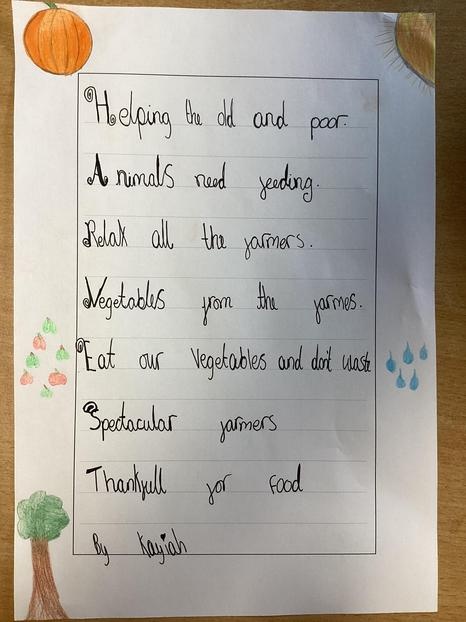 Helping the old and poor.
Animals need feeding.
Relax all the farmers.
Vegetables from the farmes.
Eat our Vegetables and don't waste
Spectacular farmers
Thankfull for food
By Kayiah